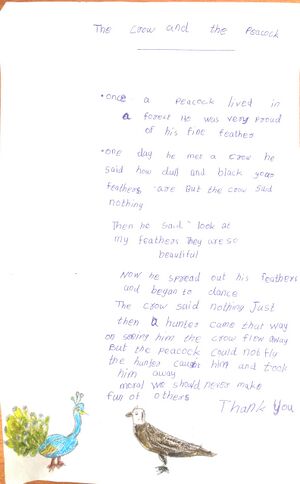 The Crow and the Peacock
• once a Peacock lived in
a forest He was very Proud
of his fine feather
• one day he met a crow he
said how dull and black your
feathers are But the crow said
nothing
Then he said " look at
my feathers They are so
beautiful
Now he spread out his feathers
and began to dance
The crow said nothing Just
then a hunter came that way
on seeing him the crow flew away
But the peacock could not fly
the hunter caught him and took
him away
moral we should never make
fun of others
Thank You